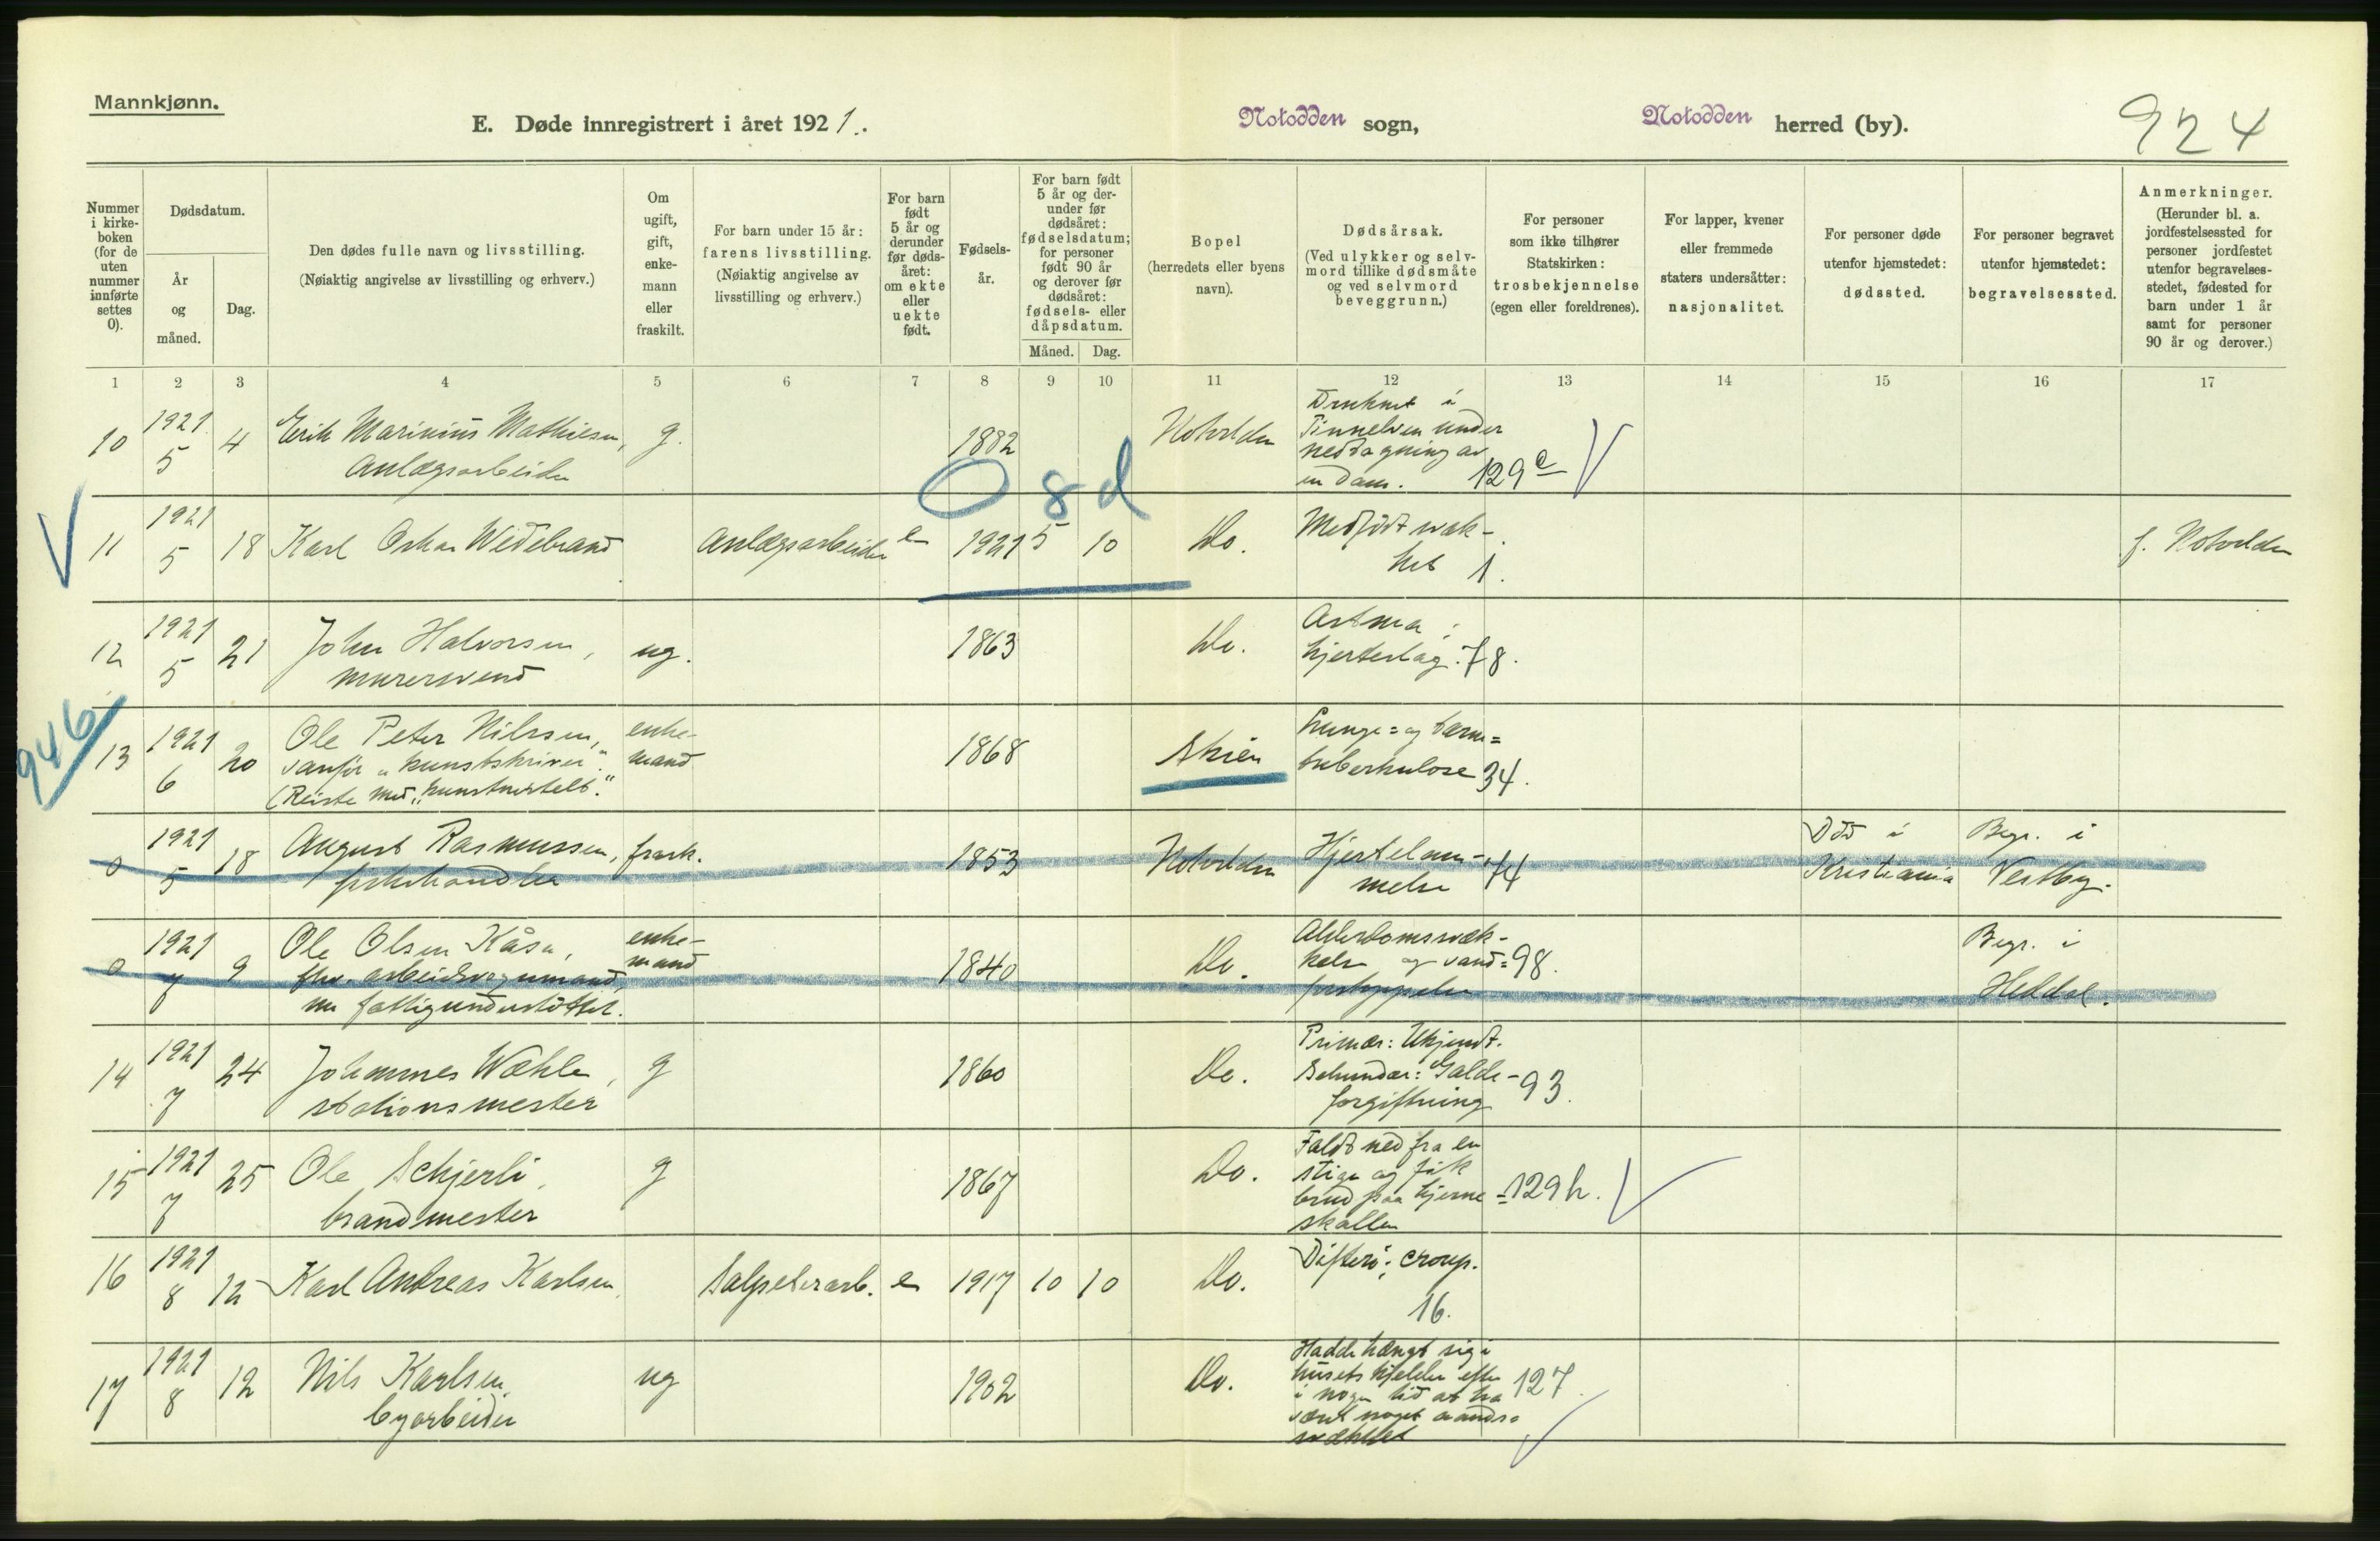 Mannkjønn.
E. Døde innregistrert i året 1921.
Notodden sogn,
Notodden herred (by).
924
Nummer i kirke-boken (for de uten nummer innførte settes 0).
Dødsdatum.
År og måned.
Dag.
Den dødes fulle navn og livsstilling.
(Nøiaktig angivelse av livsstilling og erhverv.)
Om ugift, gift, enke-mann eller fraskilt.
For barn under 15 år: farens livsstilling.
(Nøiaktig angivelse av livsstilling og erhverv.)
For barn født 5 år og derunder før døds-året: om ekte eller uekte født.
Fødsels-år.
For barn født 5 år og der-under før dødsåret: fødselsdatum; for personer født 90 år og derover før dødsåret: fødsels- eller dåpsdatum.
Måned. Dag.
Bopel (herredets eller byens navn).
Dødsårsak.
(Ved ulykker og selv-mord tillike dødsmåte og ved selvmord beveggrunn.)
For personer som ikke tilhører Statskirken: trosbekjennelse (egen eller foreldrenes).
For lapper, kvener eller fremmede staters undersåtter: nasjonalitet.
For personer døde utenfor hjemstedet: dødssted.
For personer begravet utenfor hjemstedet: begravelsessted.
Anmerkninger.
(Herunder bl. a. jordfestelsessted for personer jordfestet utenfor begravelses-stedet, fødested for barn under 1 år samt for personer 90 år og derover.)
1 2 3 4 5 6 7 8 9 10 11 12 13 14 15 16 17
10 1921 5 4 Erik Marinius Mathiesen, anlægsarbeider g. 1882 Notodden Druknet i Tinnelven under nedtagning av en dam. 129e
O 8 d
11 1921 5 18 Karl Oskar Wedebrand Anlægsarbeider e 1921 5 10 Do. Medfødt svak-het 1. f. Notodden
12 1921 5 21 John Halvorsen, murersvend ug. 1863 Do. Astma; hjerteslag. 78.
946
13 1921 6 20 Ole Peter Nilssen, vanfør "kunstskriver". (Reiste med "kunstnertelt". enke-mand 1868 Skien Lunge- og tarm-tuberkulose 34.
0 1921 5 18 August Rasmussen, fiskehandler frask. 1853 Notodden Hjertelam-melse 74 Død i Kristiania Begr. i Vestby.
0 1921 7 9 Ole Olsen Kåsa, fhv. arbeidsvognmand, nu fattigunderstøttet. enke-mand 1840 Do. Alderdomssvæk-kelse og vand-forstoppelse 98. Begr. i Heddal.
14 1921 7 24 Johannes Wæhle, stationsmester g 1860 Do. Primær: Ukjendt. Sekundær: Galde-forgiftning 93.
15 1921 7 25 Ole Schjerli, brandmester g 1867 Do. Faldt ned fra en stige og fik brud paa hjerne-skallen 129h.
16 1921 8 12 Karl Andreas Karlsen. Salpeterarb. e 1917 10 10 Do. Difteri; croup. 16.
17 1921 8 12 Nils Karlsen, byarbeider ug 1902 Do. Hadde hængt sig i husets kjelder efter i nogen tid at ha været noget aands-svækket 127.